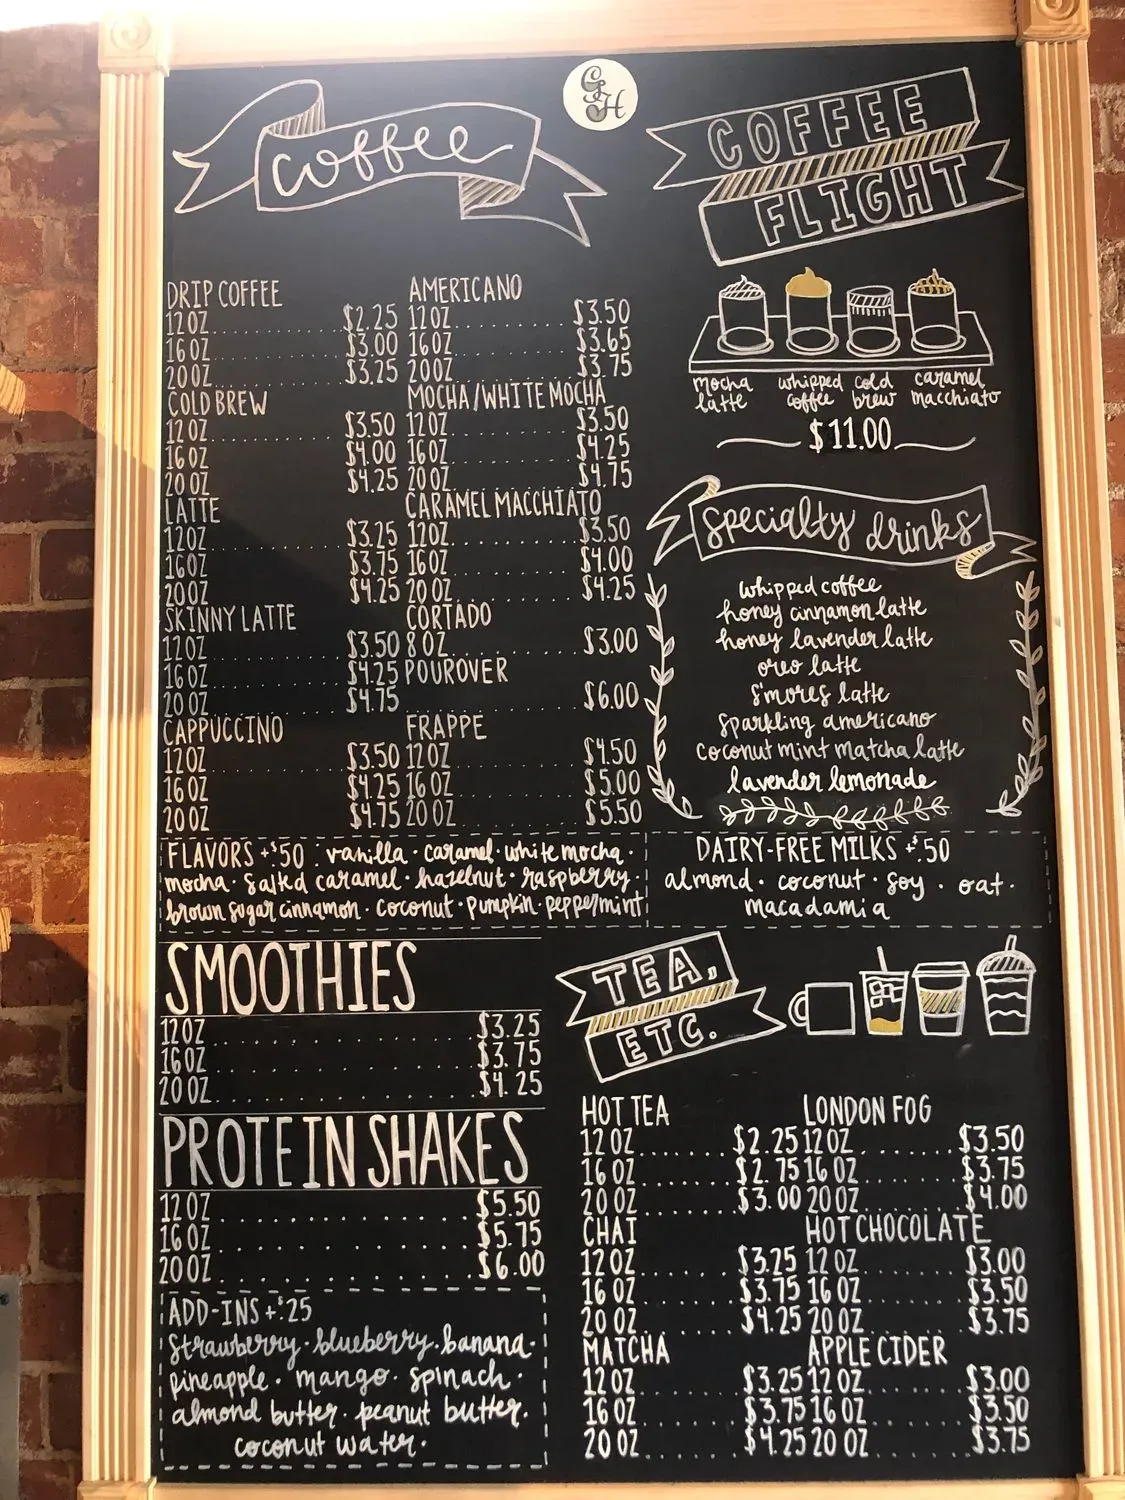 GJH
coffee
DRIP COFFEE
12 OZ..........$2.25
16 OZ..........$3.00
20 OZ..........$3.25
COLD BREW
12 OZ..........$3.50
16 OZ..........$4.00
20 OZ..........$4.25
LATTE
12 OZ..........$3.25
16 OZ..........$3.75
20 OZ..........$4.25
SKINNY LATTE
12 OZ..........$3.50
16 OZ..........$4.25
20 OZ..........$4.75
CAPPUCCINO
12 OZ..........$3.50
16 OZ..........$4.25
20 OZ..........$4.75
AMERICANO
12 OZ..........$3.50
16 OZ..........$3.65
20 OZ..........$3.75
MOCHA/WHITE MOCHA
12 OZ..........$3.50
16 OZ..........$4.25
20 OZ..........$4.75
CARAMEL MACCHIATO
12 OZ..........$3.50
16 OZ..........$4.00
20 OZ..........$4.25
CORTADO
8 OZ..........$3.00
POUROVER
..........$6.00
FRAPPE
12 OZ..........$4.50
16 OZ..........$5.00
20 OZ..........$5.50
COFFEE
FLIGHT
mocha latte
whipped coffee
cold brew
caramel macchiato
$11.00
specialty drinks
whipped coffee
honey cinnamon latte
honey lavender latte
oreo latte
s'mores latte
sparkling americano
coconut mint matcha latte
lavender lemonade
FLAVORS +$.50 : vanilla · caramel · white mocha ·
mocha · salted caramel · hazelnut · raspberry ·
brown sugar cinnamon · coconut · pumpkin · peppermint
DAIRY-FREE MILKS +$.50
almond · coconut · soy · oat ·
macadamia
SMOOTHIES
12 OZ..........$3.25
16 OZ..........$3.75
20 OZ..........$4.25
PROTEIN SHAKES
12 OZ..........$5.50
16 OZ..........$5.75
20 OZ..........$6.00
ADD-INS +$.25
strawberry · blueberry · banana ·
pineapple · mango · spinach ·
almond butter · peanut butter ·
coconut water ·
TEA,
ETC.
HOT TEA
12 OZ..........$2.25
16 OZ..........$2.75
20 OZ..........$3.00
CHAI
12 OZ..........$3.25
16 OZ..........$3.75
20 OZ..........$4.25
MATCHA
12 OZ..........$3.25
16 OZ..........$3.75
20 OZ..........$4.25
LONDON FOG
12 OZ..........$3.50
16 OZ..........$3.75
20 OZ..........$4.00
HOT CHOCOLATE
12 OZ..........$3.00
16 OZ..........$3.50
20 OZ..........$3.75
APPLE CIDER
12 OZ..........$3.00
16 OZ..........$3.50
20 OZ..........$3.75